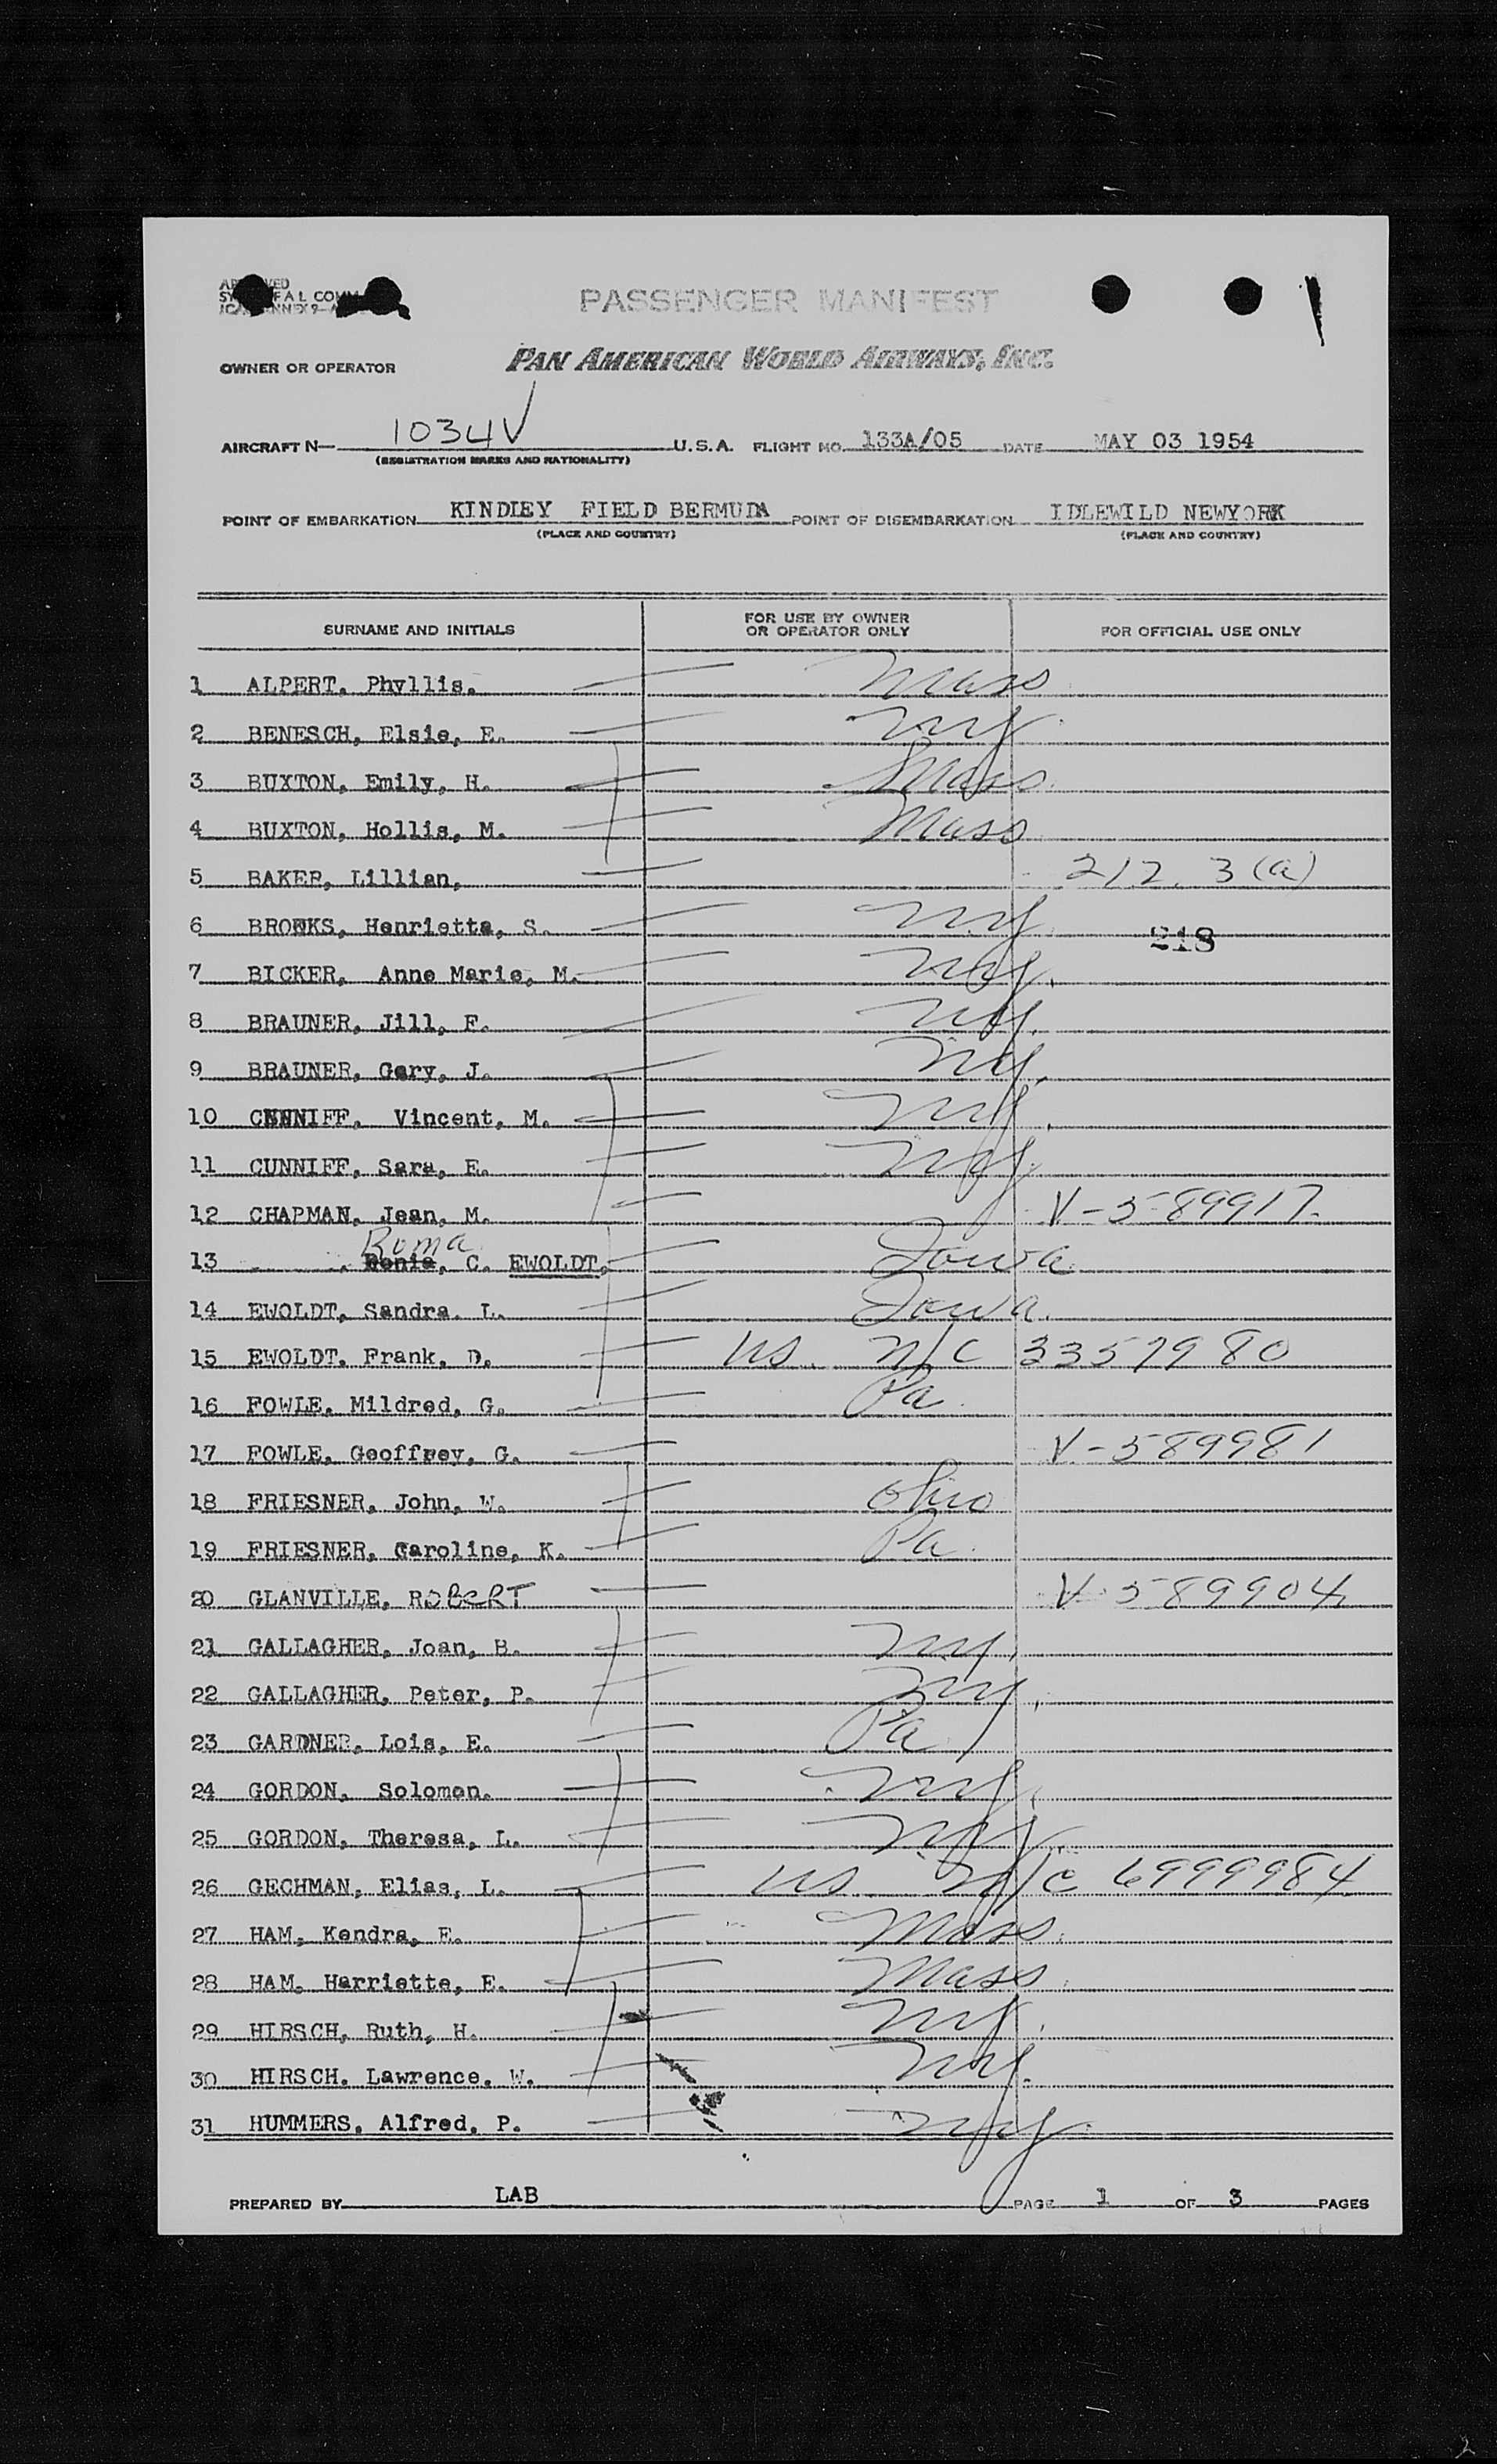 PASSENGER MANIFEST
OWNER OR OPERATOR PAN AMERICAN WORLD AIRWAYS, INC.
AIRCRAFT N— 1034V U.S.A. FLIGHT NO. 133A/05 DATE MAY 03 1954
(REGISTRATION MARKS AND NATIONALITY)
POINT OF EMBARKATION KINDLEY FIELD BERMUDA POINT OF DISEMBARKATION IDLEWILD NEWYORK
(PLACE AND COUNTRY) (PLACE AND COUNTRY)
SURNAME AND INITIALS FOR USE BY OWNER OR OPERATOR ONLY FOR OFFICIAL USE ONLY
1 ALPERT, Phyllis. Mass
2 BENESCH, Elsie, E. NY
3 BUXTON, Emily, H. Mass.
4 BUXTON, Hollis, M. Mass
5 BAKER, Lillian, 212. 3(a)
6 BROOKS, Henrietta, S. NY
218
7 BICKER, Anne Marie, M. NY.
8 BRAUNER, Jill, F. NY.
9 BRAUNER, Gary, J. NY.
10 CUNNIFF, Vincent, M. NY.
11 CUNNIFF, Sara, E. NY.
12 CHAPMAN, Jean, M. V-589917.
Roma
13 , C. EWOLDT, Iowa
14 EWOLDT, Sandra. L. Iowa.
15 EWOLDT, Frank, D. US N/C 3357980
16 FOWLE, Mildred, G. Pa.
17 FOWLE, Geoffrey, G. V-589981
18 FRIESNER, John, W. Ohio
19 FRIESNER, Caroline, K. Pa.
20 GLANVILLE, ROBERT V-589904
21 GALLAGHER, Joan, B. NY.
22 GALLAGHER, Peter, P. NY.
23 GARDNER, Lois, E. Pa
24 GORDON, Solomon. NY.
25 GORDON, Theresa, L. NY.
26 GECHMAN, Elias, L. US N/C 6999984
27 HAM, Kendra, E. Mass.
28 HAM, Harriette, E. Mass.
29 HIRSCH, Ruth, H. NY.
30 HIRSCH, Lawrence, W. NY.
31 HUMMERS, Alfred, P. NY.
PREPARED BY LAB PAGE 1 OF 3 PAGES